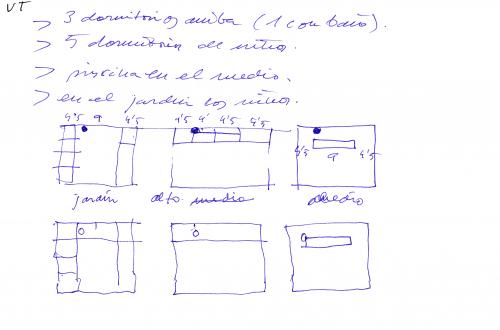 VT
> 3 dormitorios arriba (1 con baño).
> 5 dormitorios de niños.
> piscina en el medio.
> en el jardin los niños.
4'5 9 4'5
4'5 4' 4'5 4'5
4'5 9 4'5
jardín alto medio